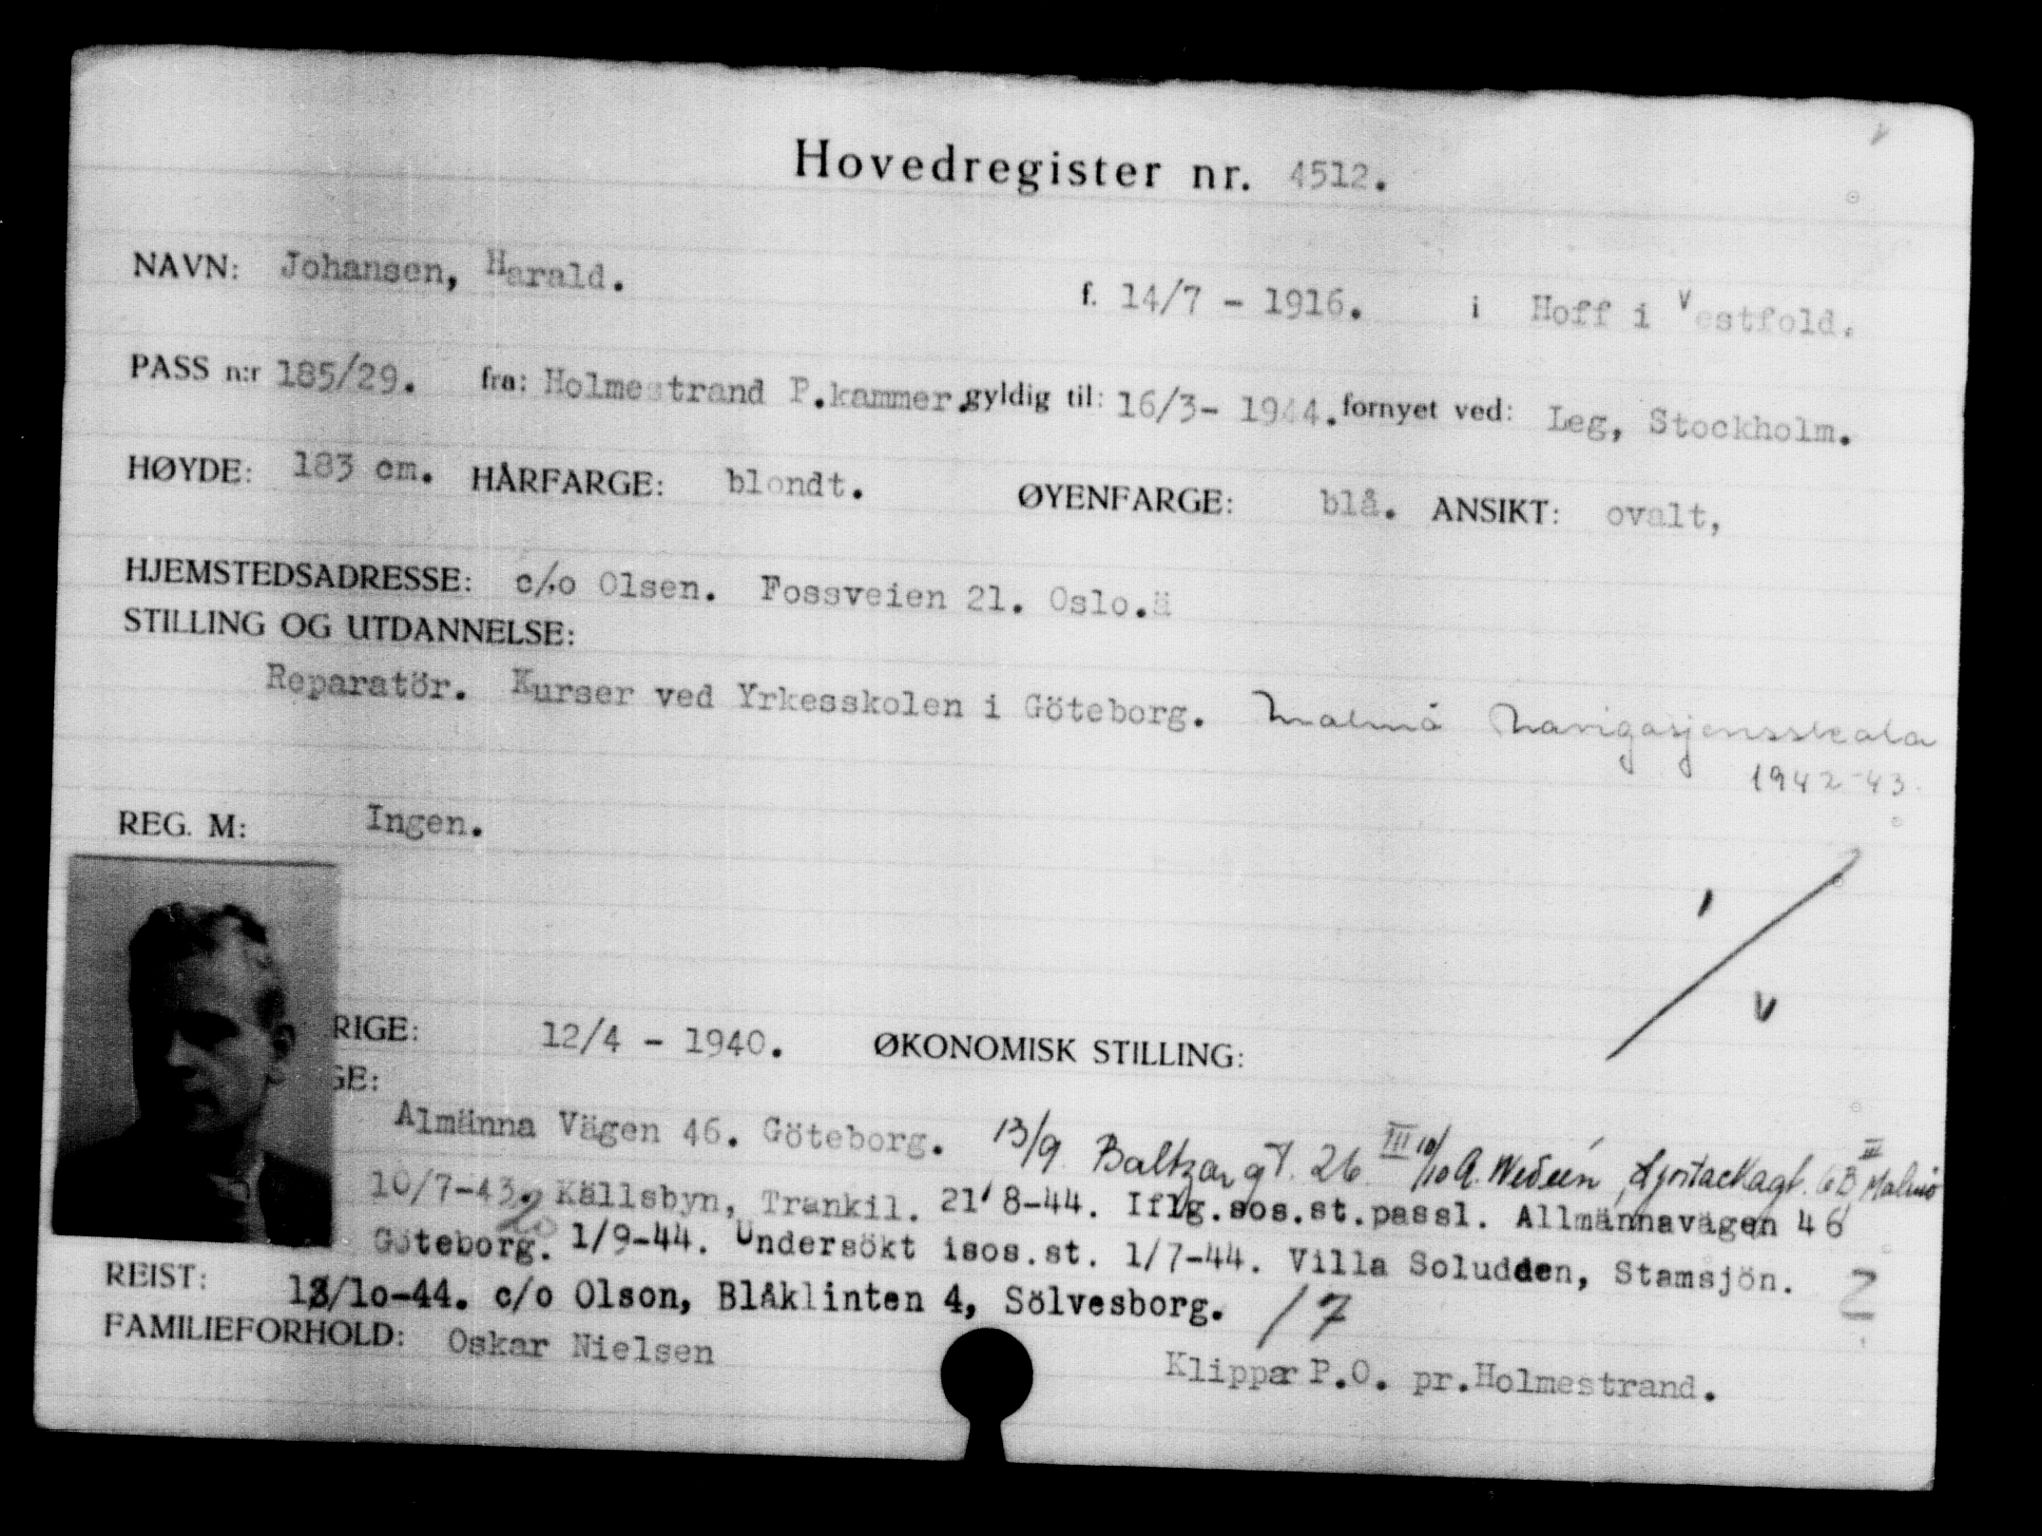 Hovedregister nr. 4512.
NAVN: Johansen, Harald. f. 14/7 - 1916. i Hoff i Vestfold.
PASS n:r 185/29. fra: Holmestrand P.kammer. gyldig til: 16/3- 1944. fornyet ved: Leg, Stockholm.
HØYDE: 183 cm. HÅRFARGE: blondt. ØYENFARGE: blå. ANSIKT: ovalt,
HJEMSTEDSADRESSE: c/o Olsen. Fossveien 21. Oslo.ä
STILLING OG UTDANNELSE:
Reparatör. Kurser ved Yrkesskolen i Göteborg. Malmö Navigasjonsskola
1942-43.
REG. M: Ingen.
RIGE: 12/4 - 1940. ØKONOMISK STILLING:
GE:
Almänna Vägen 46. Göteborg. 13/9 Baltzar gt. 26 III 10/10 A. Wedeén, 6B III Malmö
10/7-43. Källsbyn, Trankil. 21/8-44. Iflg.sos.st.passl. Allmännavägen 46
Göteborg. 1/9-44. Undersökt isos.st. 1/7-44. Villa Soludden, Stamsjön.
REIST: /10-44. c/o Olson, Blåklinten 4, Sölvesborg. 17 2
FAMILIEFORHOLD: Oskar Nielsen Klippær P.O. pr.Holmestrand.